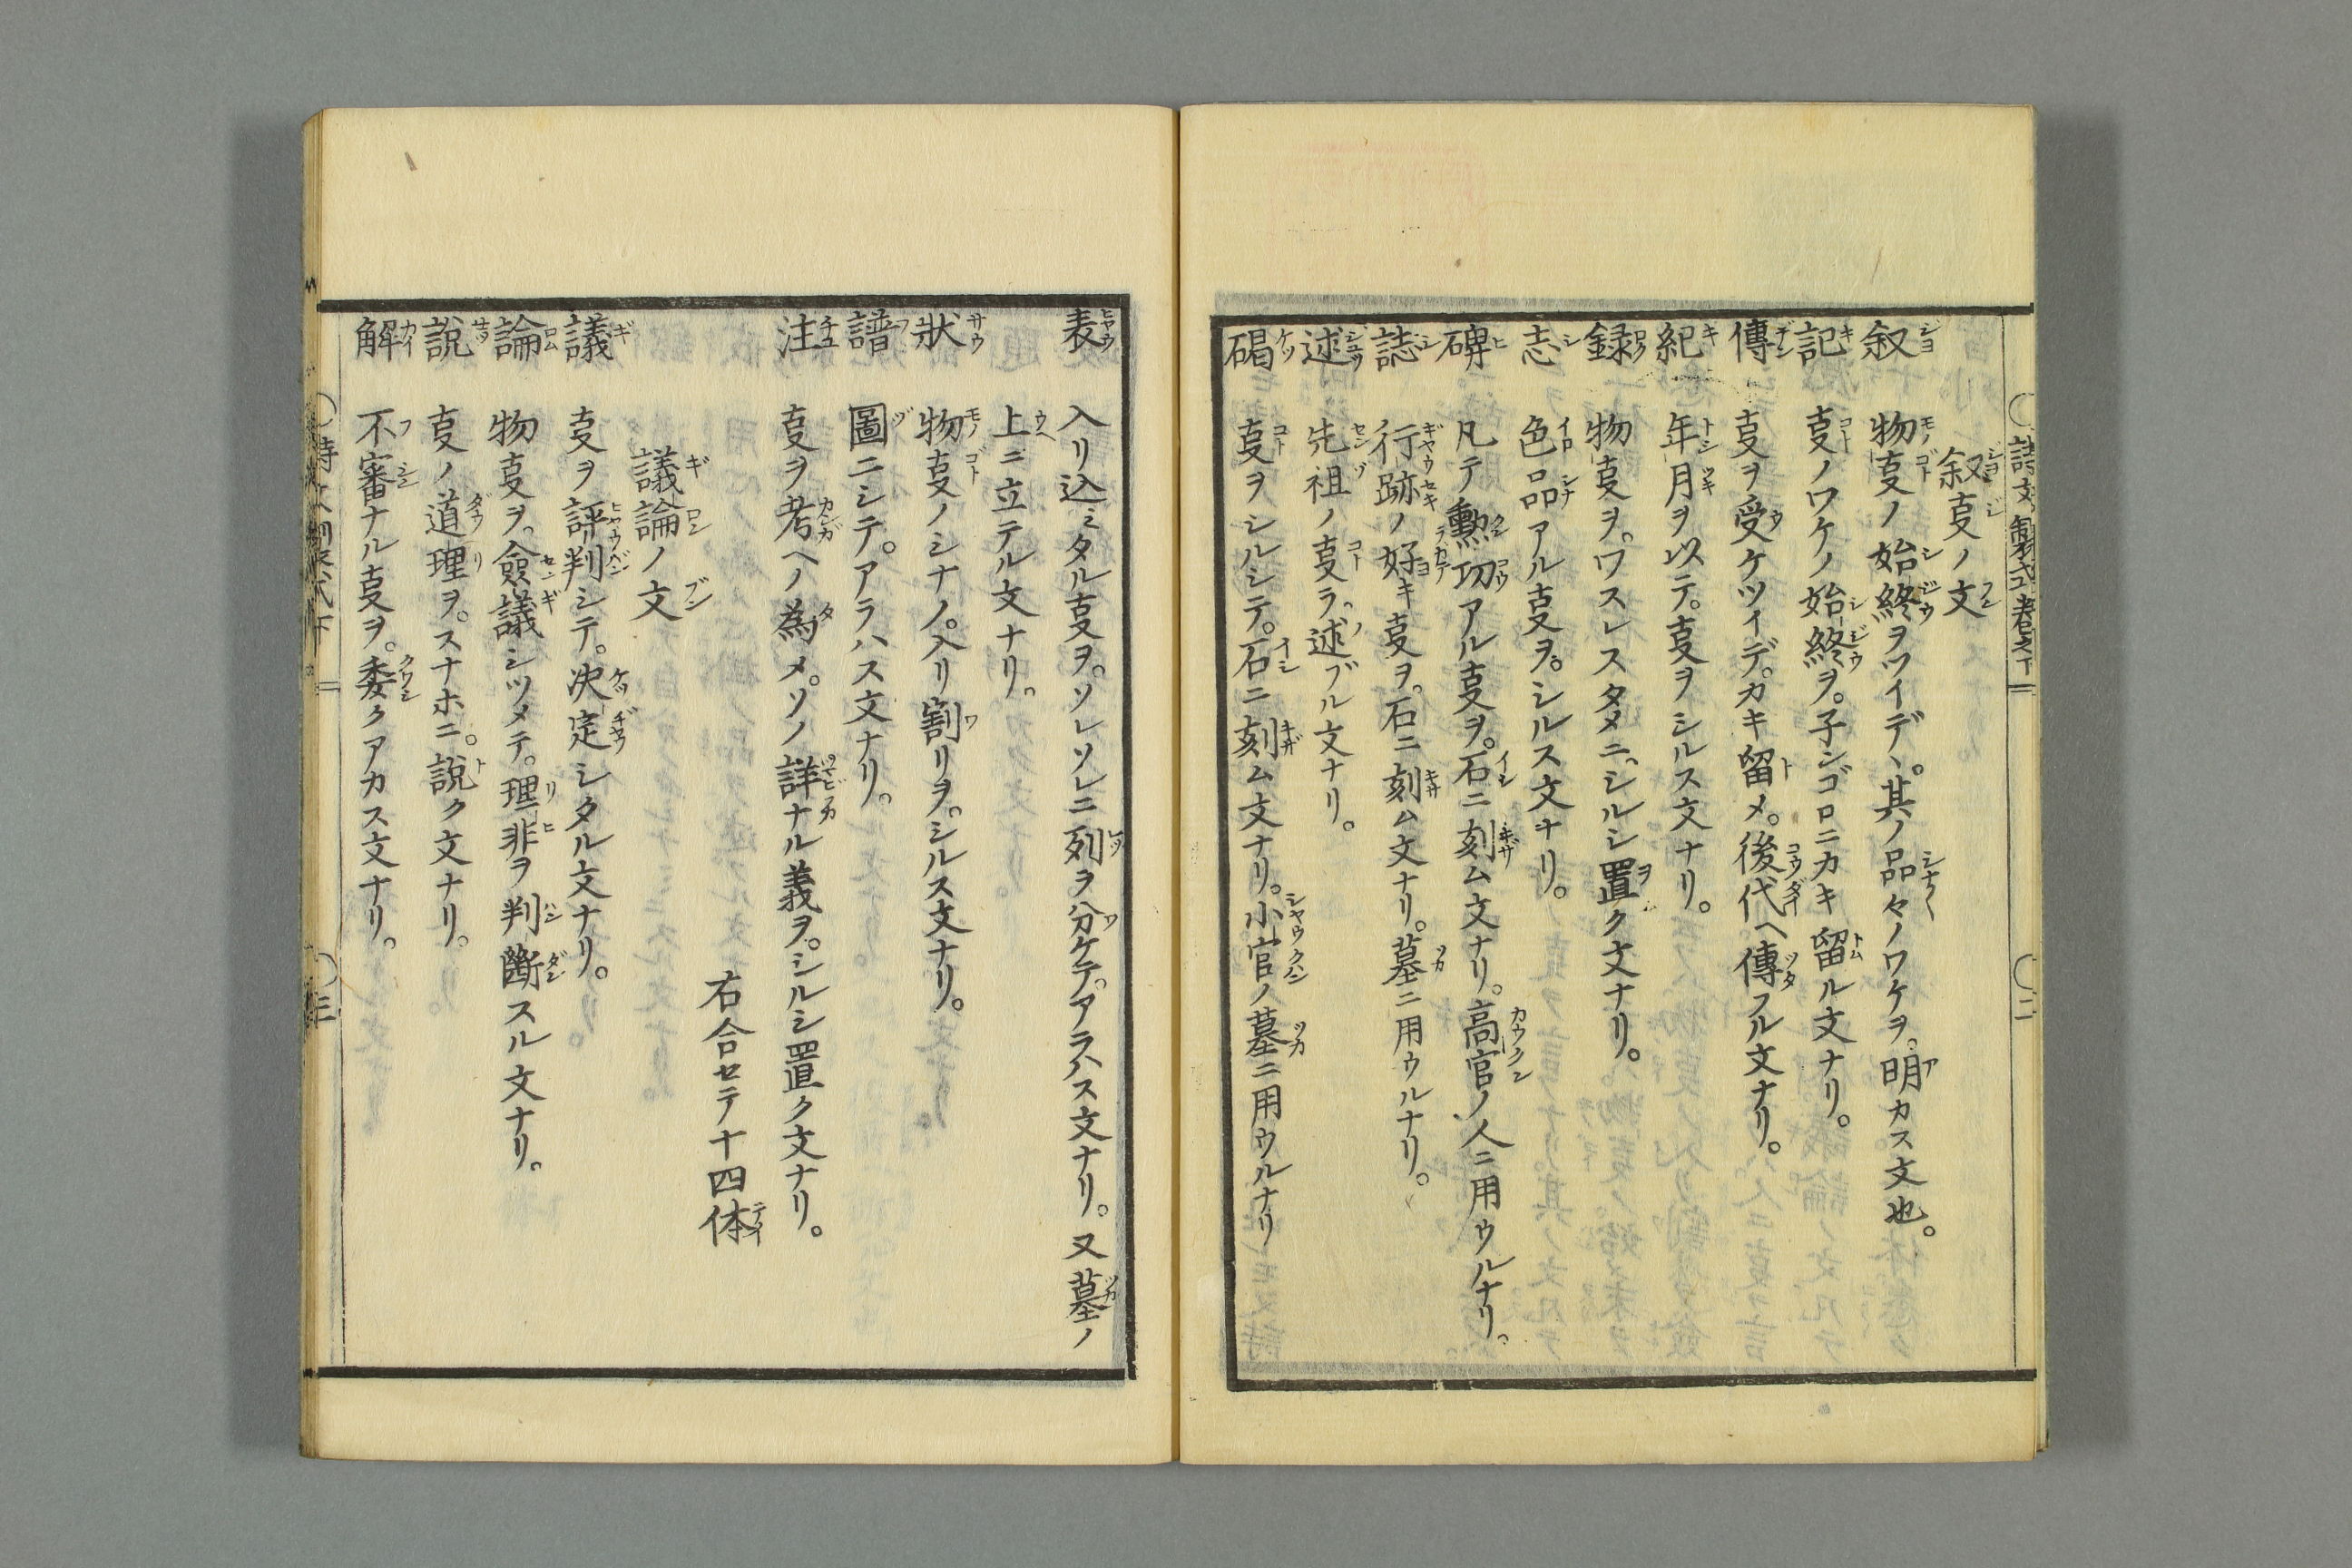 詩文製式卷之下 二
叙叓ノ文
叙 物叓ノ始終ヲツイデヽ。其ノ品々ノワケヲ。明カス文也。
記 叓ノワケノ始終ヲ。子ンゴロニカキ留ル文ナリ。
傳 叓ヲ受ケツイデ。カキ留メ。後代ヘ傳フル文ナリ。
紀 年月ヲ以テ。叓ヲシルス文ナリ。
録 物叓ヲ。ワスレスタメニ。シルシ置ク文ナリ。
志 色品アル叓ヲ。シルス文ナリ。
碑 凡テ勲功アル叓ヲ。石ニ刻ム文ナリ。高官ノ人ニ用ウルナリ。
誌 行跡ノ好キ叓ヲ。石ニ刻ム文ナリ。墓ニ用ウルナリ。
述 先祖ノ叓ラ。述ブル文ナリ。
碣 叓ヲシルシテ。石ニ刻ム文ナリ。小官ノ墓ニ用ウルナリ
表 入リ込ミタル叓ヲ。ソレソレニ列ヲ分ケテ。アラハス文ナリ。又墓ノ
上ニ立テル文ナリ。
狀 物叓ノシナノ。入リ割リヲ。シルス文ナリ。
譜 圖ニシテ。アラハス文ナリ。
注 叓ヲ考ヘノ為メ。ソノ詳ナル義ヲ。シルシ置ク文ナリ。
右合セテ十四体
議論ノ文
議 叓ヲ評判シテ。决定シタル文ナリ。
論 物叓ヲ。僉議シツメテ。理非ヲ判斷スル文ナリ。
說 叓ノ道理ヲ。スナホニ。說ク文ナリ。
解 不審ナル叓ヲ。委クアカス文ナリ。
三